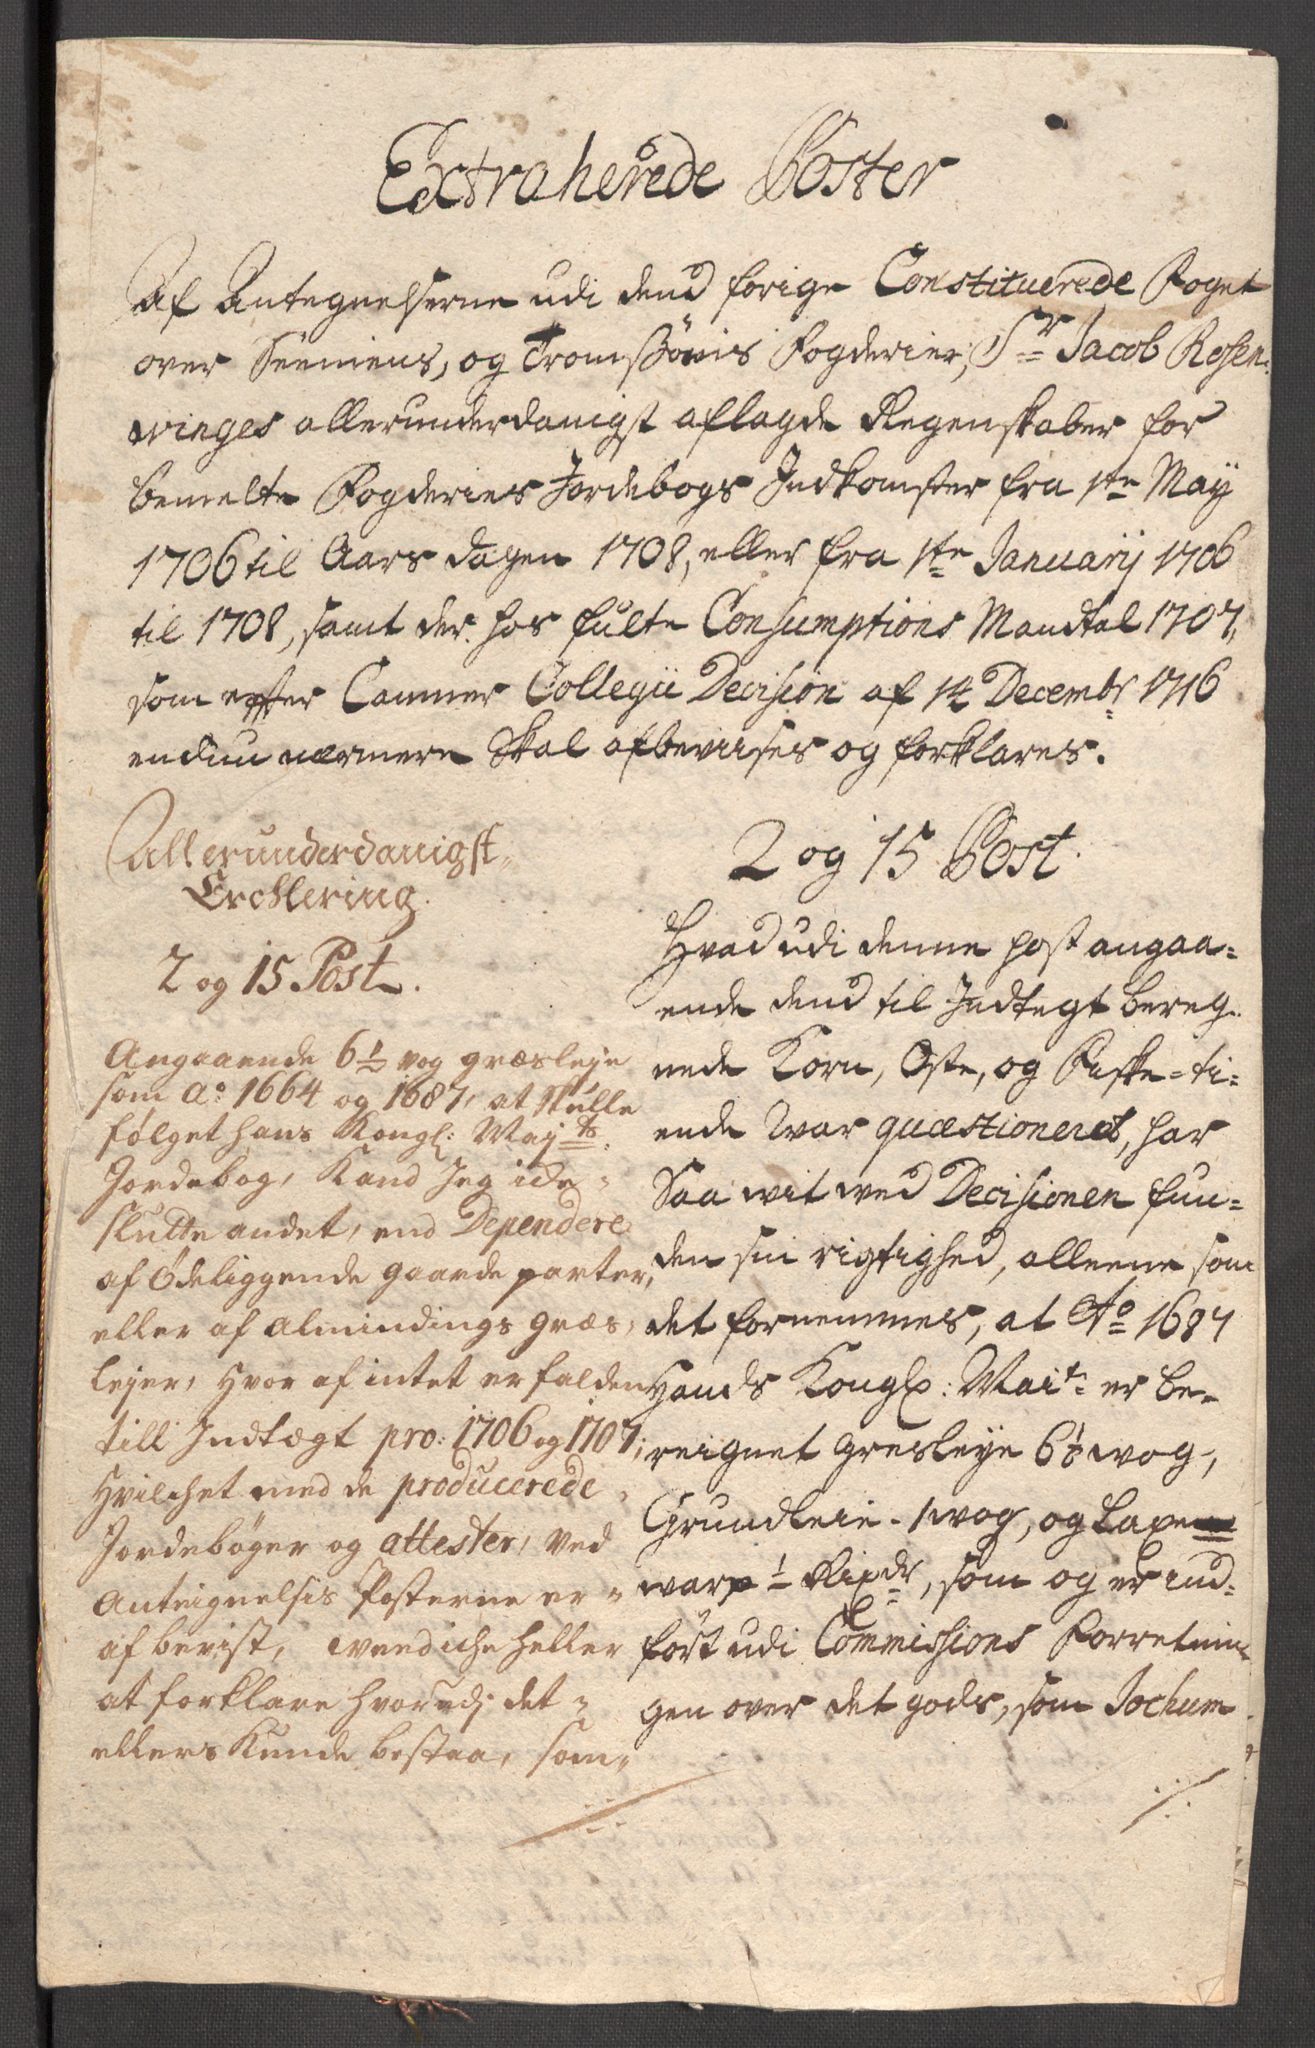 Extraherede Poster
Af Antegnelserne udi dend forige Constituerede Foget
over Senniens, og Tromsöens Fogderier, Sr Jacob Rosen-
winges allerunderdanigst aflagde Regenskaber for
bemelte Fogderies Jordebogs Indkomster fra 1ste May
1706 til Aars dagen 1708, eller fra 1ste Januarij 1706
til 1708, samt der hos fulte Consumptions Mandtal 1707,
som effter Cammer Collegii Decision af 14 Decembr 1716
endnu nærmere Skal afbevises og forklares.
Allerunderdanigst
Erchlering.
2 og 15 Post.
Angaaende 6 1/2 vog græsleye
som Ao: 1664 og 1687, at skulle
fölget hans Kongl: Mayts
Jordebog, Kand Jeg icke
slutte andet, end Dependere
af Ödeliggende gaarde parter,
eller af Almindings græs-
lejer, Hvor af intet er falden
till Indtægt pro: 1706 og 1707,
Hvilchet med de producerede
Jordeböger og attester, ved
Anteignelsis Posterne er
af bevist, weed iche heller
at forklare hvorudj det
ellers Kunde bestaa, som
2 og 15 Post.
Hvad udi denne post angaa-
ende dend til Indtegt bereg-
nede Korn, Oste, og Fiske-ti-
ende War quæstioneret, har
Saa wit wed Decisionen fun-
den sin rigtighed, alleene som
det fornemmes, at Ao 1687
Hands Kongl: Mait: er be-
reignet Gresleye 6 1/2 wog,
Grundleie 1 wog, og Laxe
warp 1/2 Rixdr, som og er ind-
fört udi Commissions Forretnin-
gen over det gods, som Jochum